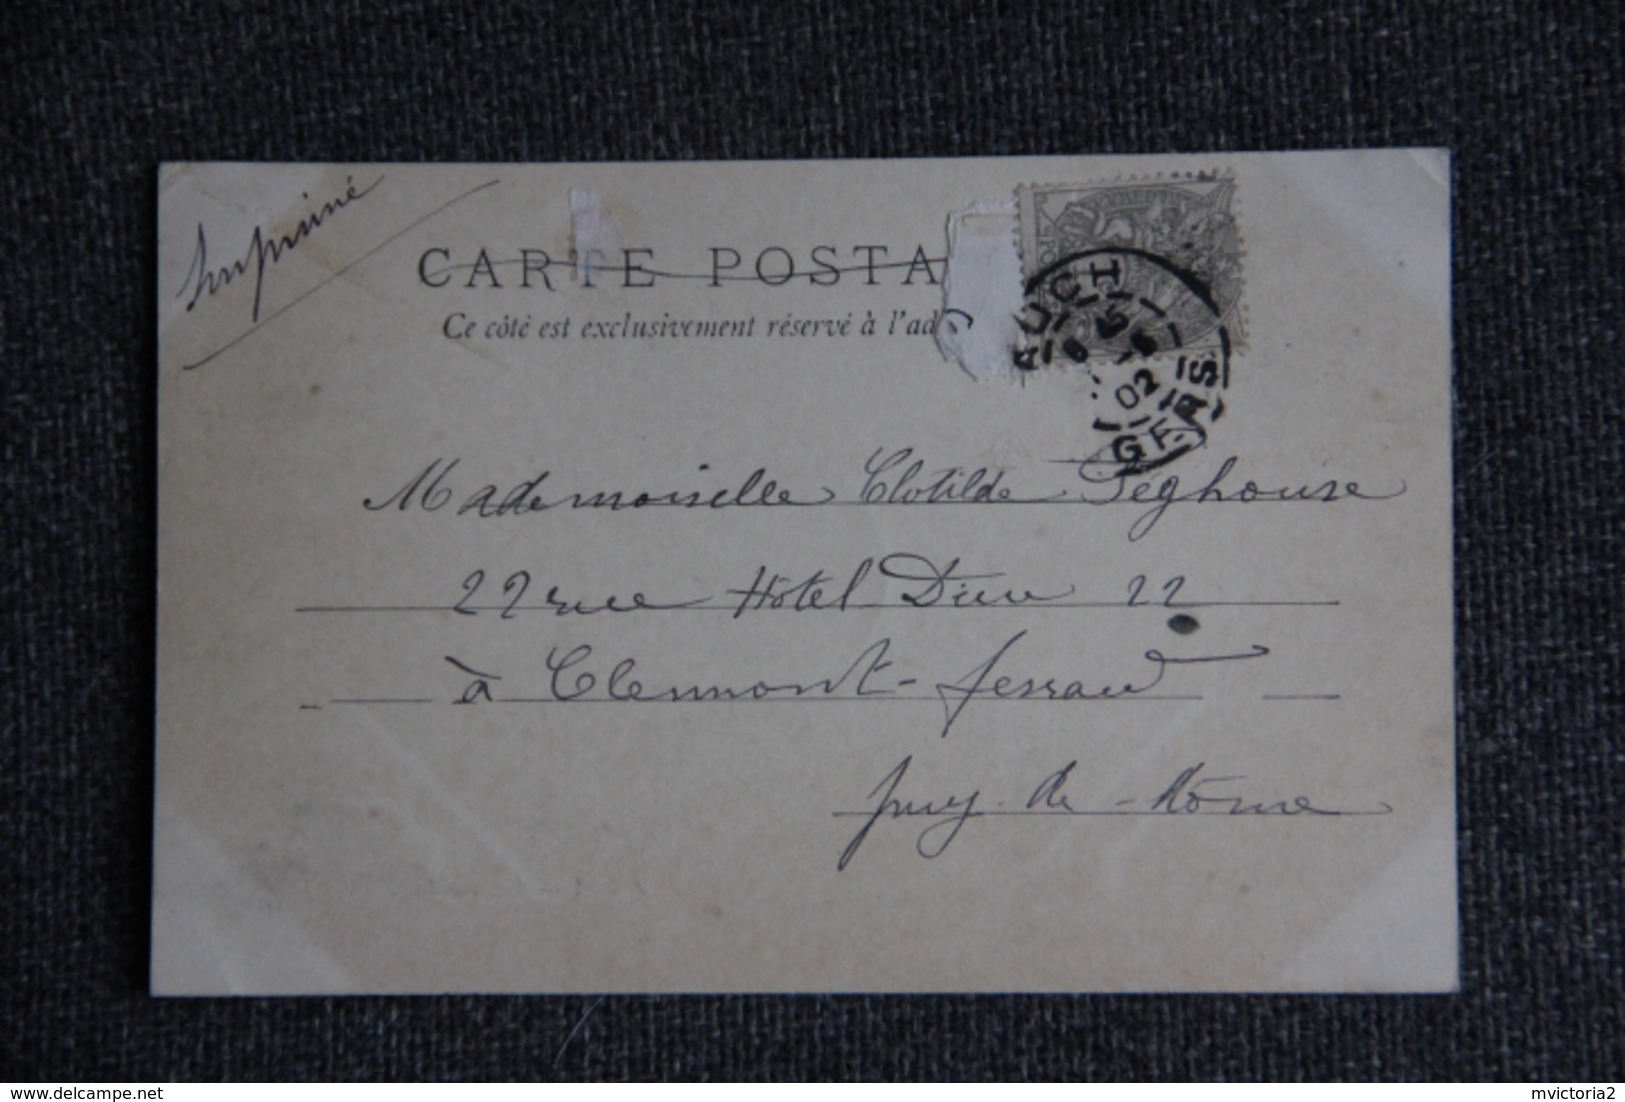 Imprimé
CARTE POSTA
Ce côté est exclusivement réservé à l'ad
AUCH
02
GERS
Mademoiselle Clotilde Peghouse
22 rue Hôtel Dieu 22
à Clermont-ferrand
puy-de-dôme
delcampe.net
mvictoria2